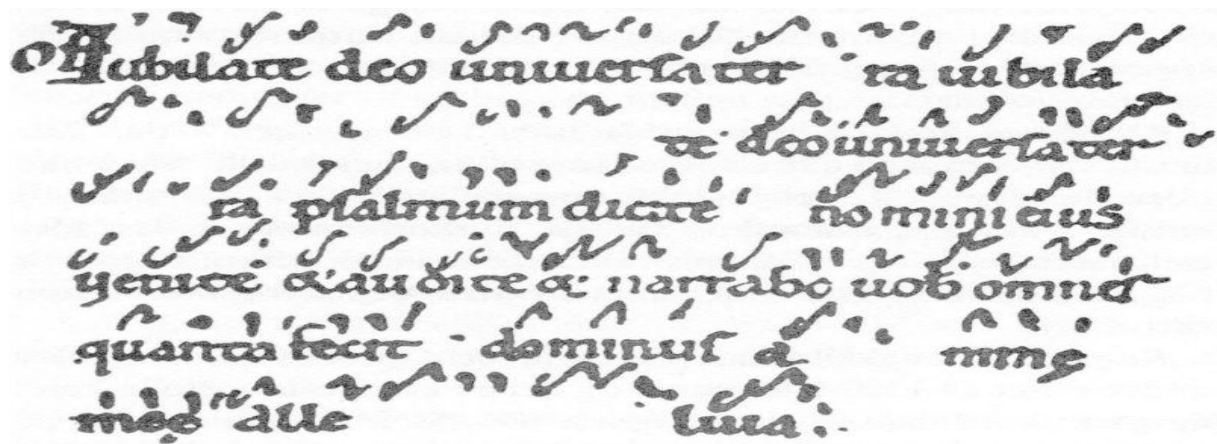 Iubilate deo uniuerſa ter ra iubila
te deo uniuerſa ter
ra pſalmum dicite no mini eius
uenite & audite & narrabo uob omnes
quanta fecit dominuſ a nimę
meę alle luia :